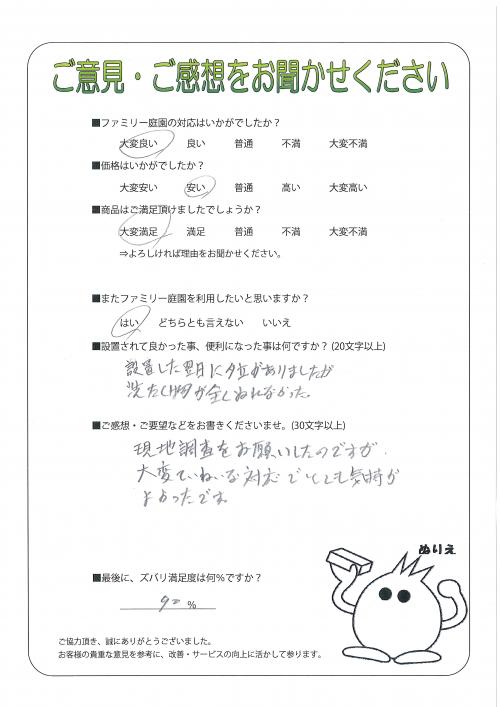 ご意見・ご感想をお聞かせください
■ファミリー庭園の対応はいかがでしたか？
大変良い 良い 普通 不満 大変不満
■価格はいかがでしたか？
大変安い 安い 普通 高い 大変高い
■商品はご満足頂けましたでしょうか？
大変満足 満足 普通 不満 大変不満
⇒よろしければ理由をお聞かせください。
■またファミリー庭園を利用したいと思いますか？
はい どちらとも言えない いいえ
■設置されて良かった事、便利になった事は何ですか？(20文字以上)
設置した翌日に夕立がありましたが
洗たく物が全くぬれなかった。
■ご感想・ご要望などをお書きくださいませ。(30文字以上)
現地調査をお願いしたのですが、
大変ていねいな対応でとても気持が
よかったです。
ぬりえ
■最後に、ズバリ満足度は何%ですか？
90 %
ご協力頂き、誠にありがとうございました。
お客様の貴重な意見を参考に、改善・サービスの向上に活かして参ります。